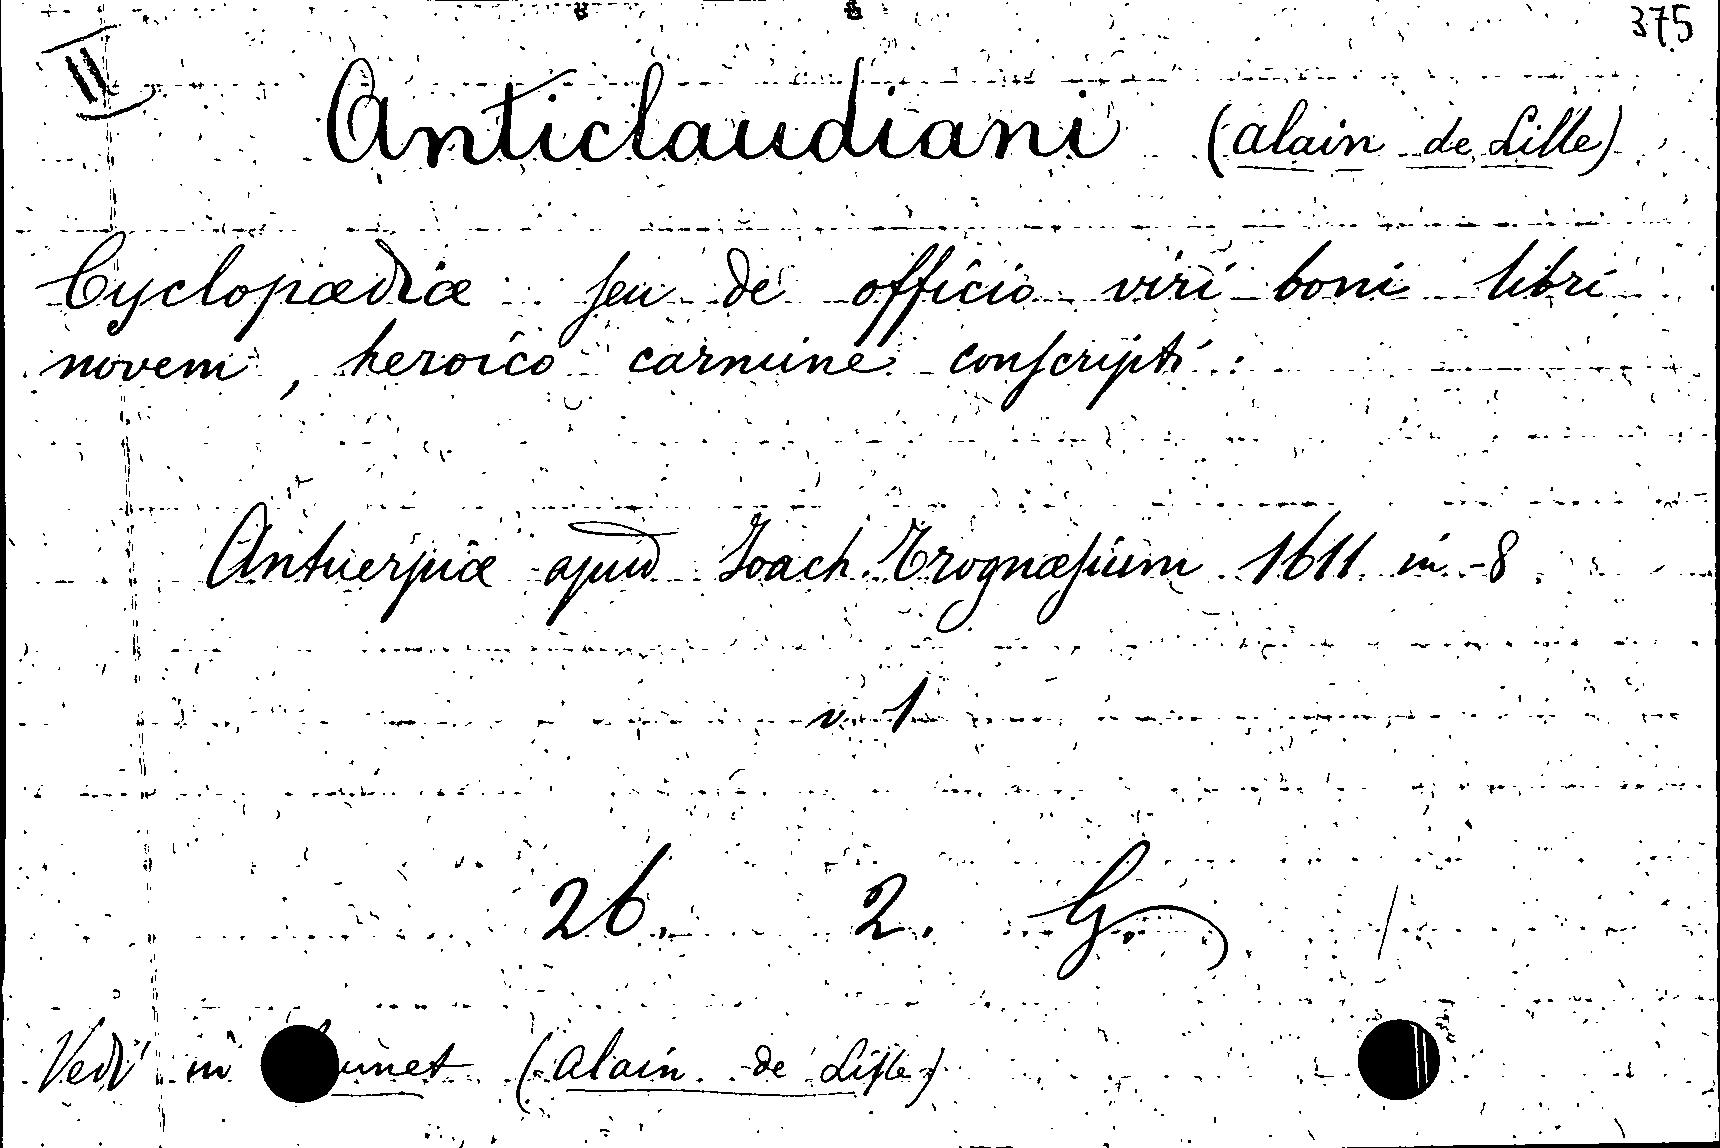 375
II
Anticlaudiani (Alain de Lille)
Cyclopædiæ ſeu de officio viri boni libri
novem, heroico carmine conſcripti:
Antuerpiæ apud Joach. Trognæſium 1611 in-8
v. 1
26. 2. G.
Vedi in (Alain de Lille)